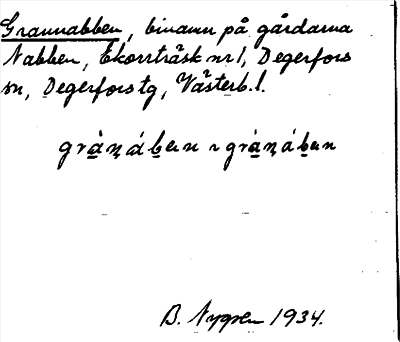 Grannabben, binamn på gårdarna
Nabben, Ekorrträsk nr 1, Degerfors
sn, Degerfors tg, Västerb. l.
B. Nygren 1934.